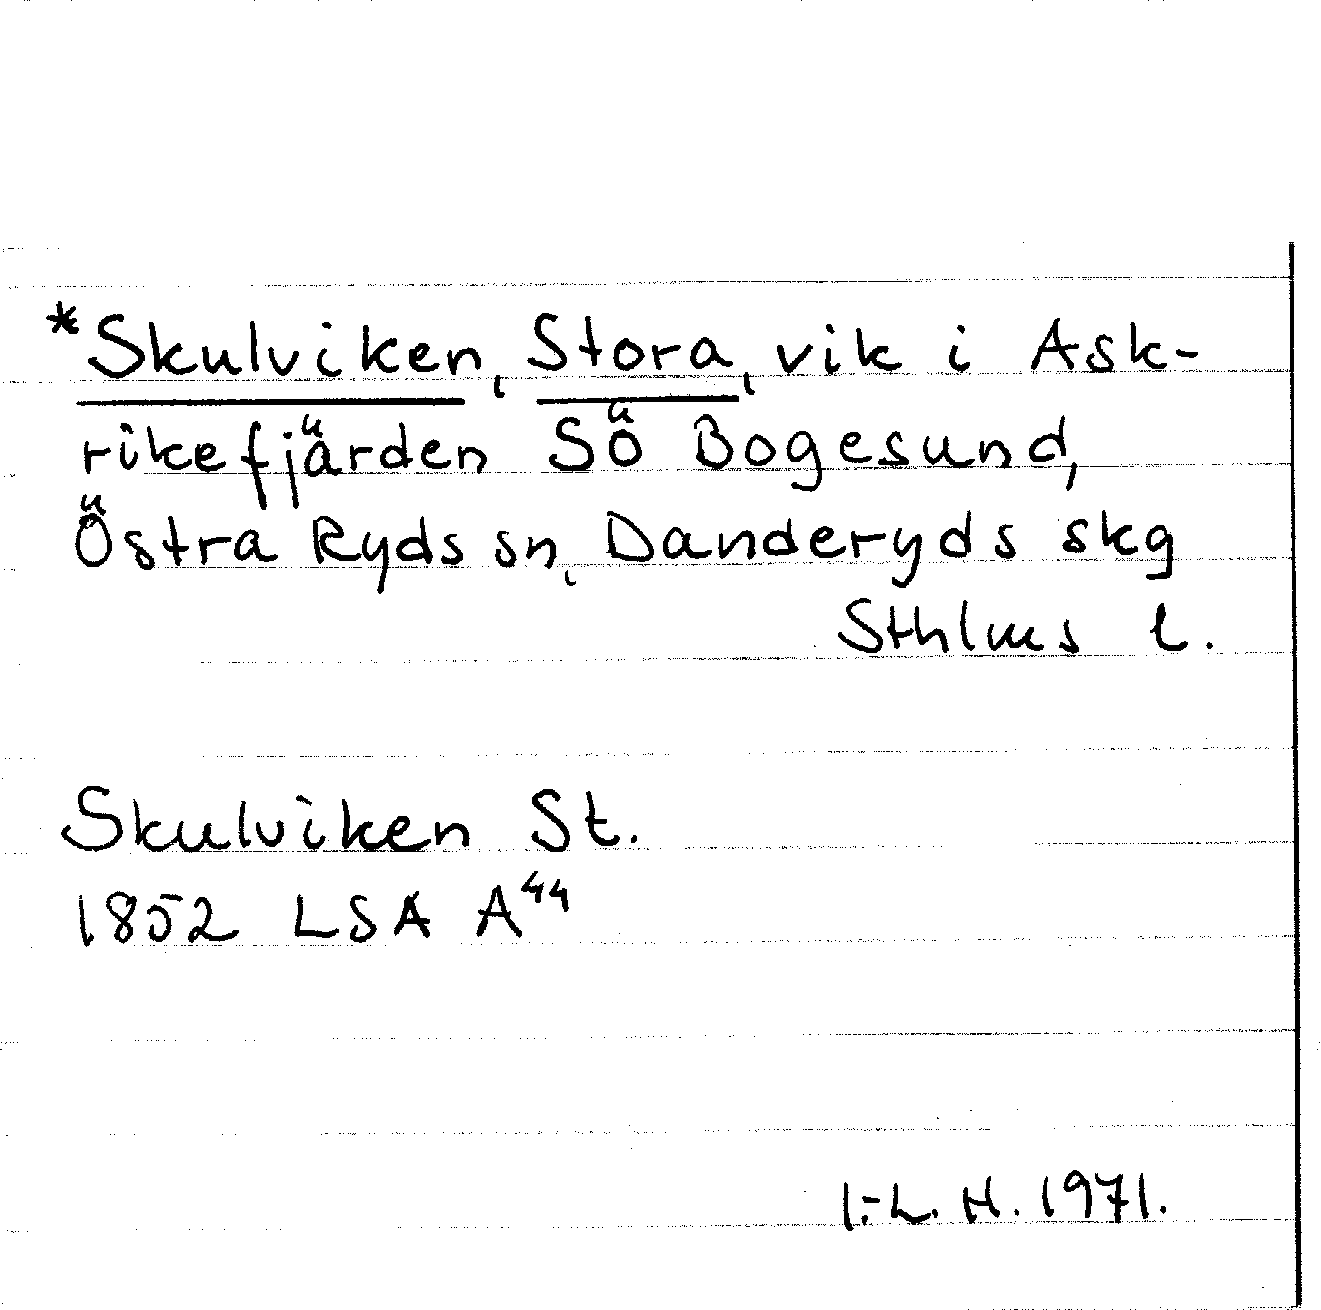 *Skulviken, Stora, vik i Ask-
rikefjärden SÖ Bogesund,
Östra Ryds sn, Danderyds skg
Sthlms l.
Skulviken St.
1852 LSA A⁴⁴
I.-L. H. 1971.